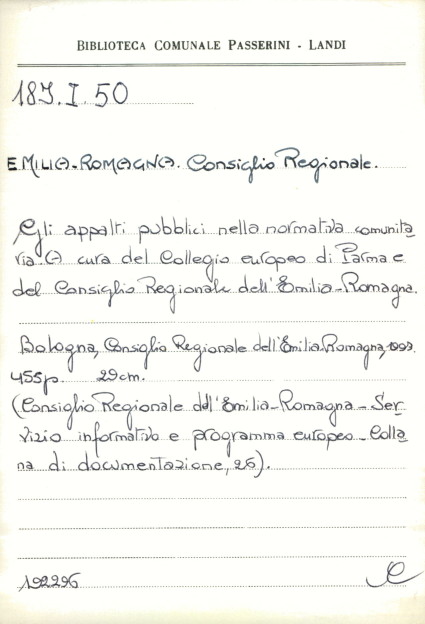 BIBLIOTECA COMUNALE PASSERINI - LANDI
187.I.50
EMILIA-ROMAGNA. Consiglio Regionale.
Gli appalti pubblici nella normativa comunita
ria. (A cura del Collegio europeo di Parma e
del Consiglio Regionale dell'Emilia-Romagna.
Bologna, Consiglio Regionale dell'Emilia Romagna,
455p. 29cm.
(Consiglio Regionale dell'Emilia-Romagna - Ser
vizio informativo e programma europeo - Colla
na di documentazione, 26).
192296